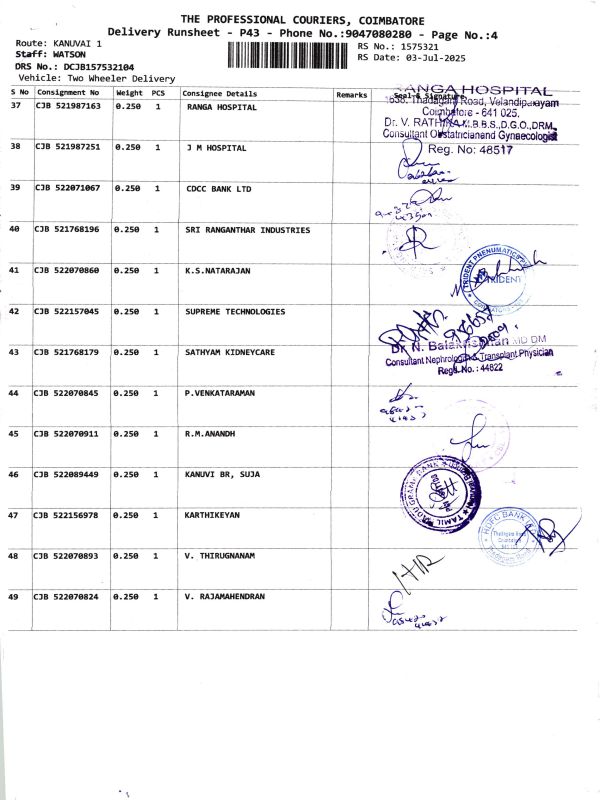 THE PROFESSIONAL COURIERS, COIMBATORE
Delivery Runsheet - P43 - Phone No.:9047080280 - Page No.:4
Route: KANUVAI 1
Staff: WATSON
DRS No.: DCJB157532104
Vehicle: Two Wheeler Delivery
RS No.: 1575321
RS Date: 03-Jul-2025
S No Consignment No Weight PCS Consignee Details Remarks Seal & Signature
37 CJB 521987163 0.250 1 RANGA HOSPITAL
RANGA HOSPITAL
Road, Velandipalayam
Coimbatore - 641 025.
Dr. V. RATHNA M.B.B.S.,D.G.O.,DRM.
Consultant Obstatricianand Gynaecologist
Reg. No: 48517
38 CJB 521987251 0.250 1 J M HOSPITAL
39 CJB 522071067 0.250 1 CDCC BANK LTD
40 CJB 521768196 0.250 1 SRI RANGANTHAR INDUSTRIES
41 CJB 522070860 0.250 1 K.S.NATARAJAN
TRIDENT PNEUMATICS
TRIDENT
42 CJB 522157045 0.250 1 SUPREME TECHNOLOGIES
43 CJB 521768179 0.250 1 SATHYAM KIDNEYCARE
Dr. N. Balakrishnan MD DM
Consultant Nephrologist & Transplant Physician
Regd. No.: 44822
44 CJB 522070845 0.250 1 P.VENKATARAMAN
45 CJB 522070911 0.250 1 R.M.ANANDH
46 CJB 522089449 0.250 1 KANUVI BR, SUJA
47 CJB 522156978 0.250 1 KARTHIKEYAN
HDFC BANK
48 CJB 522070893 0.250 1 V. THIRUGNANAM
49 CJB 522070824 0.250 1 V. RAJAMAHENDRAN